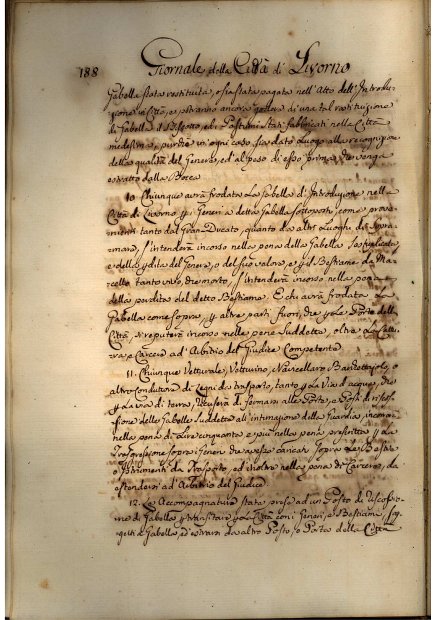 188 Giornale della Città di Livorno
Gabella stata restituita, o sia stata pagata nell'Atto dell'Introdu-
zione in Città, e potranno ancora godere di una tal restituzione
di Gabella il Biscotto, ed i Pastumi stati fabbricati nella Città
medesima, purchè in ogni caso sia dato Luogo alla recognizione
della qualità del Genere, ed al peso di esso prima che venga
estratto dalla Bocca
10. Chiunque avrà frodato La Gabella d'Introduzione nella
Città di Livorno pi Generi a detta Gabella sottoposti, come prove-
nienti tanto dal Gran-Ducato, quanto da altri Luoghi di Sopra-
mare, s'intenderà incorso nella pena della Gabella
e della pdita del Genere, o del suo valore, e p il Bestiame da Ma-
cello tanto vivo, che morto, s'intenderà incorso nella pena
della perdita del detto Bestiame. E chi avrà frodata La
Gabella come sopra, p altre parti fuori, che p Le Porte della
Città, si reputerà incorso nelle pene Suddette, oltre La Cattu-
ra, e Carcere ad Arbitrio del Giudice Competente
11. Chiunque Vetturale, Vetturino, Navicellaro, Barchettajolo, o
altro Conduttore di Legni da trasporto, tanto p La Via d'acqua, che
p La via di terra, ricuserà di fermarsi alle Porte, o Posti di riscos-
sione delle Gabelle Suddette all'intimazione della Guardia, incorrerà
nella pena di Lire cinquanta e più nella pena prescritta p La
Trasgressione sopra i Generi che avesse caricati sopra Le Bestie
o Istrumenti da Trasporto, ed inoltre nella pena di Carcere, da
estendersi ad Arbitrio del Giudice
12. Le Accompagnature state prese ad un Posto di Riscossio-
ne di Gabella p transitare p La Città con i Generi, e Bestiami, sog-
getti a Gabella, ed entrare da altro Posto, o Porta della Città